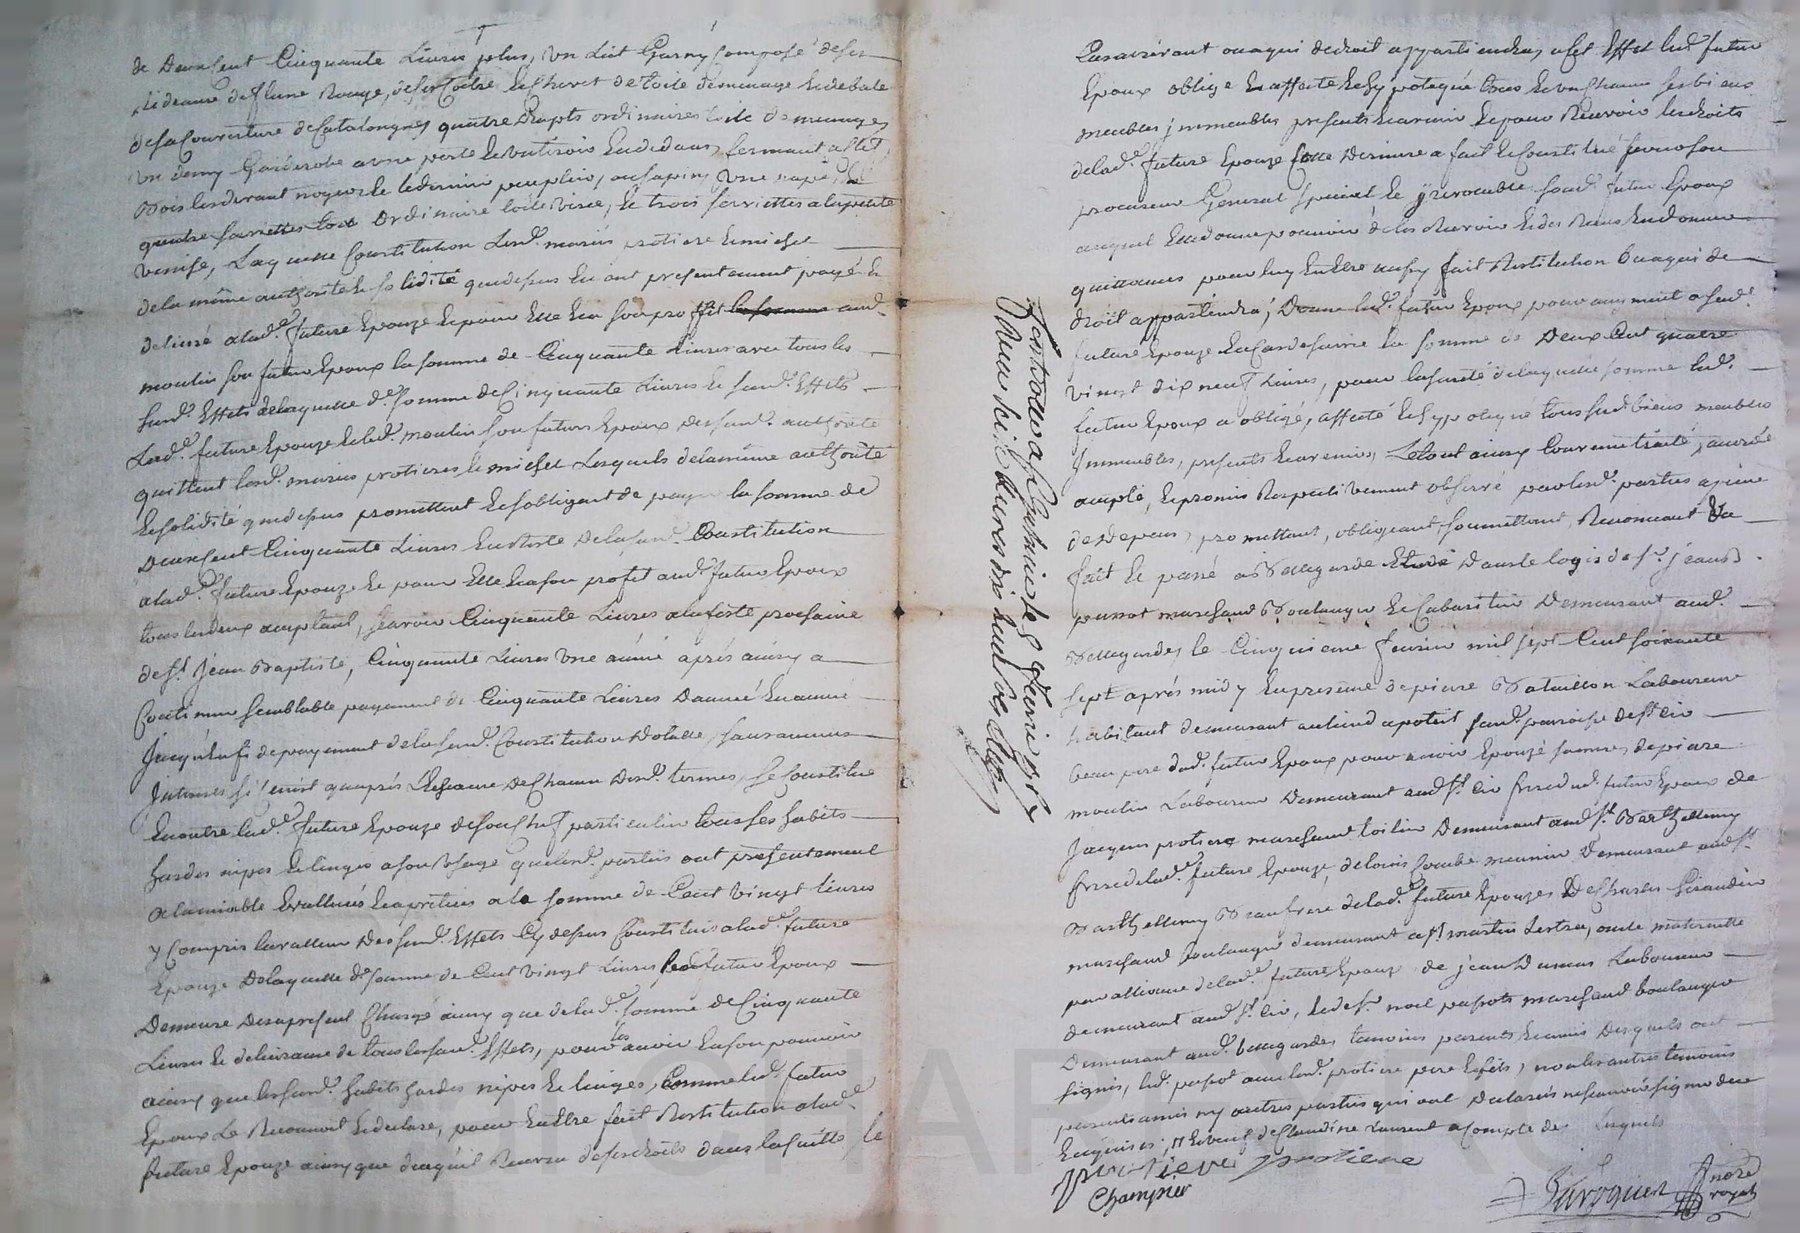 de Deux Cent Cinquante Livres plus, un Lit Garny Composé de ses
Rideaux de flane Rouge, de sa Coitre Le Chevet de toile de menage de bale
de sa Couverture de Catalongne, quatre Draps ordinaires toile de menage,
un demy Garderobe a une porte Le un tiroir En dedans, fermant a clef,
Bois Le devant noyer Le le derrier peuplier, ou sapin, une nape, Le
quatre serviettes tout ordinaire toile Vizée, Le trois serviettes a la petite
Venise, Laquelle Constitution Lesd. mariés protiere Le michel
de la même authorité Le solidité que dessus En ont presentement payé Le
delivré a lad.e future Epouze Le pour Elle En son profit la somme aud.
moulin son futur Epoux la somme de Cinquante Livres avec tous les
susd. Effets de laquelle d.e somme de Cinquante Livres Le susd. Effets
Lad.e future Epouze Le led. moulin son futur Epoux de sad. authorité
quittent lesd. mariés protiere Le michel Lesquels de la même authorité
Le solidité que dessus promettent Le s'obligent de payer la somme de
Deux Cent Cinquante Livres En Reste de la susd. Constitution
a lad.e future Epouze Le pour Elle En son profit aud. futur Epoux
tous les deux acceptant, sçavoir Cinquante Livres a la feste prochaine
de St Jean Baptiste, Cinquante Livres une année aprés ainsy a
Continuer semblable payement de Cinquante Livres D'année En année
Jusqu'a fin de payement de la susd. Constitution Dotalle, sans aucuns
Interests si n'est qu'aprés L'Echeance de Chacun Desd. termes, se Constitue
En outre lad.e future Epouze de son Chef particulier tous ses habits
hardes nipes Le linges a son Usage que lesd. parties ont presentement
a l'amiable Evallués Le apretiés a la somme de Cent Vingt livres
y Compris la valleur Des susd. Effets Cy dessus Constitués a lad.e future
Epouze De laquelle d.e somme de Cent Vingt Livres led. futur Epoux
Demeure Desapresent Chargé ainsy que de lad.e somme de Cinquante
Livres Le delivrance de tous les susd. Effets, pour les avoir En son pouvoir
ainsy que les susd. habits hardes nipes Le linges, Comme led. futur
Epoux Le Reconnoit Le declare, pour En Etre fait Restitution a lad.e
future Epouze ainsy que de ce qu'il Recevra de ses droits dans la suitte, Le
Cas arivant ou a qui de droit appartiendra, a cet Effet led. futur
Epoux oblige Le affecte Le hypotequé tous Le un Chacun ses biens
meubles immeubles presents Le avenir Le pour Recevoir les droits
de lad.e future Epouze Cette Derniere a fait Le Constitué pour son
procureur General special Le irrevocable sond. futur Epoux
auquel Elle donne pouvoir de les Recevoir Le des Reçus En donner
quittances pour luy En Etre aussy fait Restitution ou a qui de
droit appartiendra; Donne led. futur Epoux pour augment a sad.e
future Epouze En Cas de survie la somme de Deux Cent quatre
Vingt dix neuf Livres, pour la sureté de laquelle somme led.
futur Epoux a obligé, affecté Le hypotequé tous susd. biens meubles
Immeubles, presents Le avenir, Le tout ainsy Convenu traité, accordé
accepté, Le promis Respectivement observé par lesd. parties a peine
de Depens, promettant, obligeant soumettant, Renonceant &a
fait Le passé a Bellegarde Etude Dans le logis de S.r jean
passot marchand Boulanger Le Cabaretier Demeurant aud.
Bellegarde, le Cinquieme Fevrier mil sept Cent soixante
sept aprés midy En presence de pierre Bataillon Laboureur
habitant demeurant au lieud apotent susd. parroisse de St Cir
beau pere dud. futur Epoux pour avoir Epouzé de pierre
moulin Laboureur Demeurant aud. St Cir frere dud. futur Epoux de
Jacques protiere marchand toilier Demeurant aud. St Barthellemy
frere de lad.e future Epouze, de loüis Combe meunier Demeurant aud. St
Barthellemy Beaufrere de lad.e future Epouze, De Charles Girardin
marchand boulanger demeurant a St martin Lestra, oncle maternelle
par alliance de lad.e future Epouze de jean Dumas Laboureur
demeurant aud. St Cir, Le de S.r noel passot marchand boulanger
Demeurant aud. bellegarde, temoins parents Le amis Desquels ont
signés, led. passot avec lesd. protiere pere Le fils, non les autres temoins
parents amis ny autres parties qui ont Declarés ne sçavoir signer de ce
Enquis de Claudine Laurent a Compte des Lesquels
protiere protiere
Champier
Duroquet André royet
Controllé a le fevrier 1767
Reçu Six Livres dix huit sols